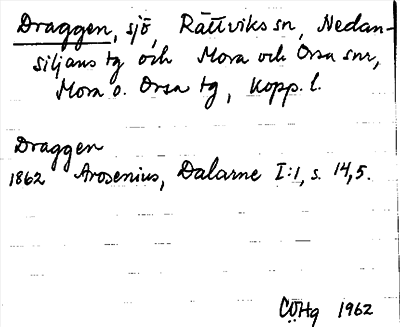 Draggen, sjö, Rättviks sn, Nedan-
siljans tg och Mora och Orsa snr,
Mora o. Orsa tg, Kopp. l.
Draggen
1862 Arosenius, Dalarne I:1, s. 14,5.
CÖHg 1962